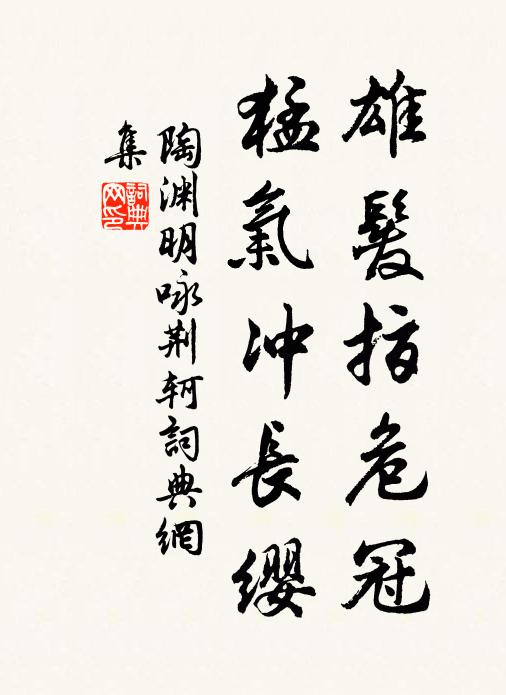 雄髮指危冠
猛氣冲長纓
陶渊明咏荆轲詞典網
集
詞典网印